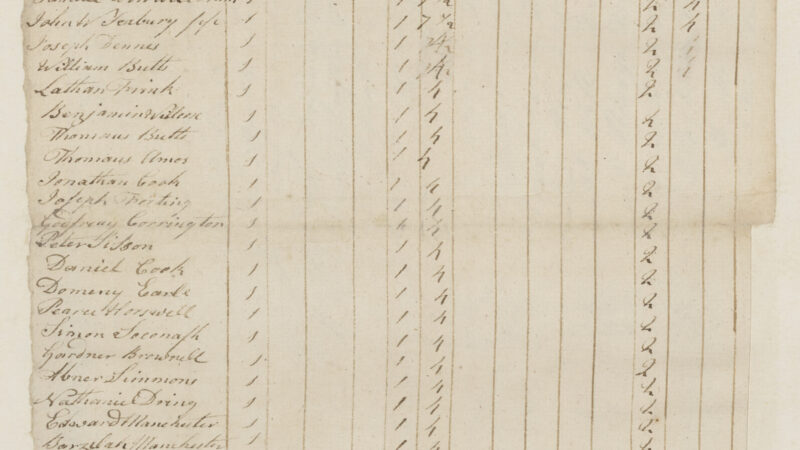 John W Seabury 1 1 7 ½ 2 4
Joseph Dennis 1 1 2
William Butts 1 1 2
Lathan 1 1 4 2
Benjamin Wilcox 1 1 4 2
Thomaus Butts 1 1 4 2
Thomaus Amos 1 1 4 2
Jonathan Cook 1 1 4 2
Joseph 1 1 4 2
Godfreay Corrington 1 4 2
Peter Sisson 1 1 4 2
Daniel Cook 1 1 4 2
Domeny Earle 1 1 4 2
Pearce Horswell 1 1 4 2
Simon Soconash 1 1 4 2
Gardner Brownell 1 1 4 2
Abner Simmons 1 1 4 2
Nathaniel Dring 1 1 4 2
Edward Manchester 1 1 4 2
Barzelah Manchester 1 1 4 2